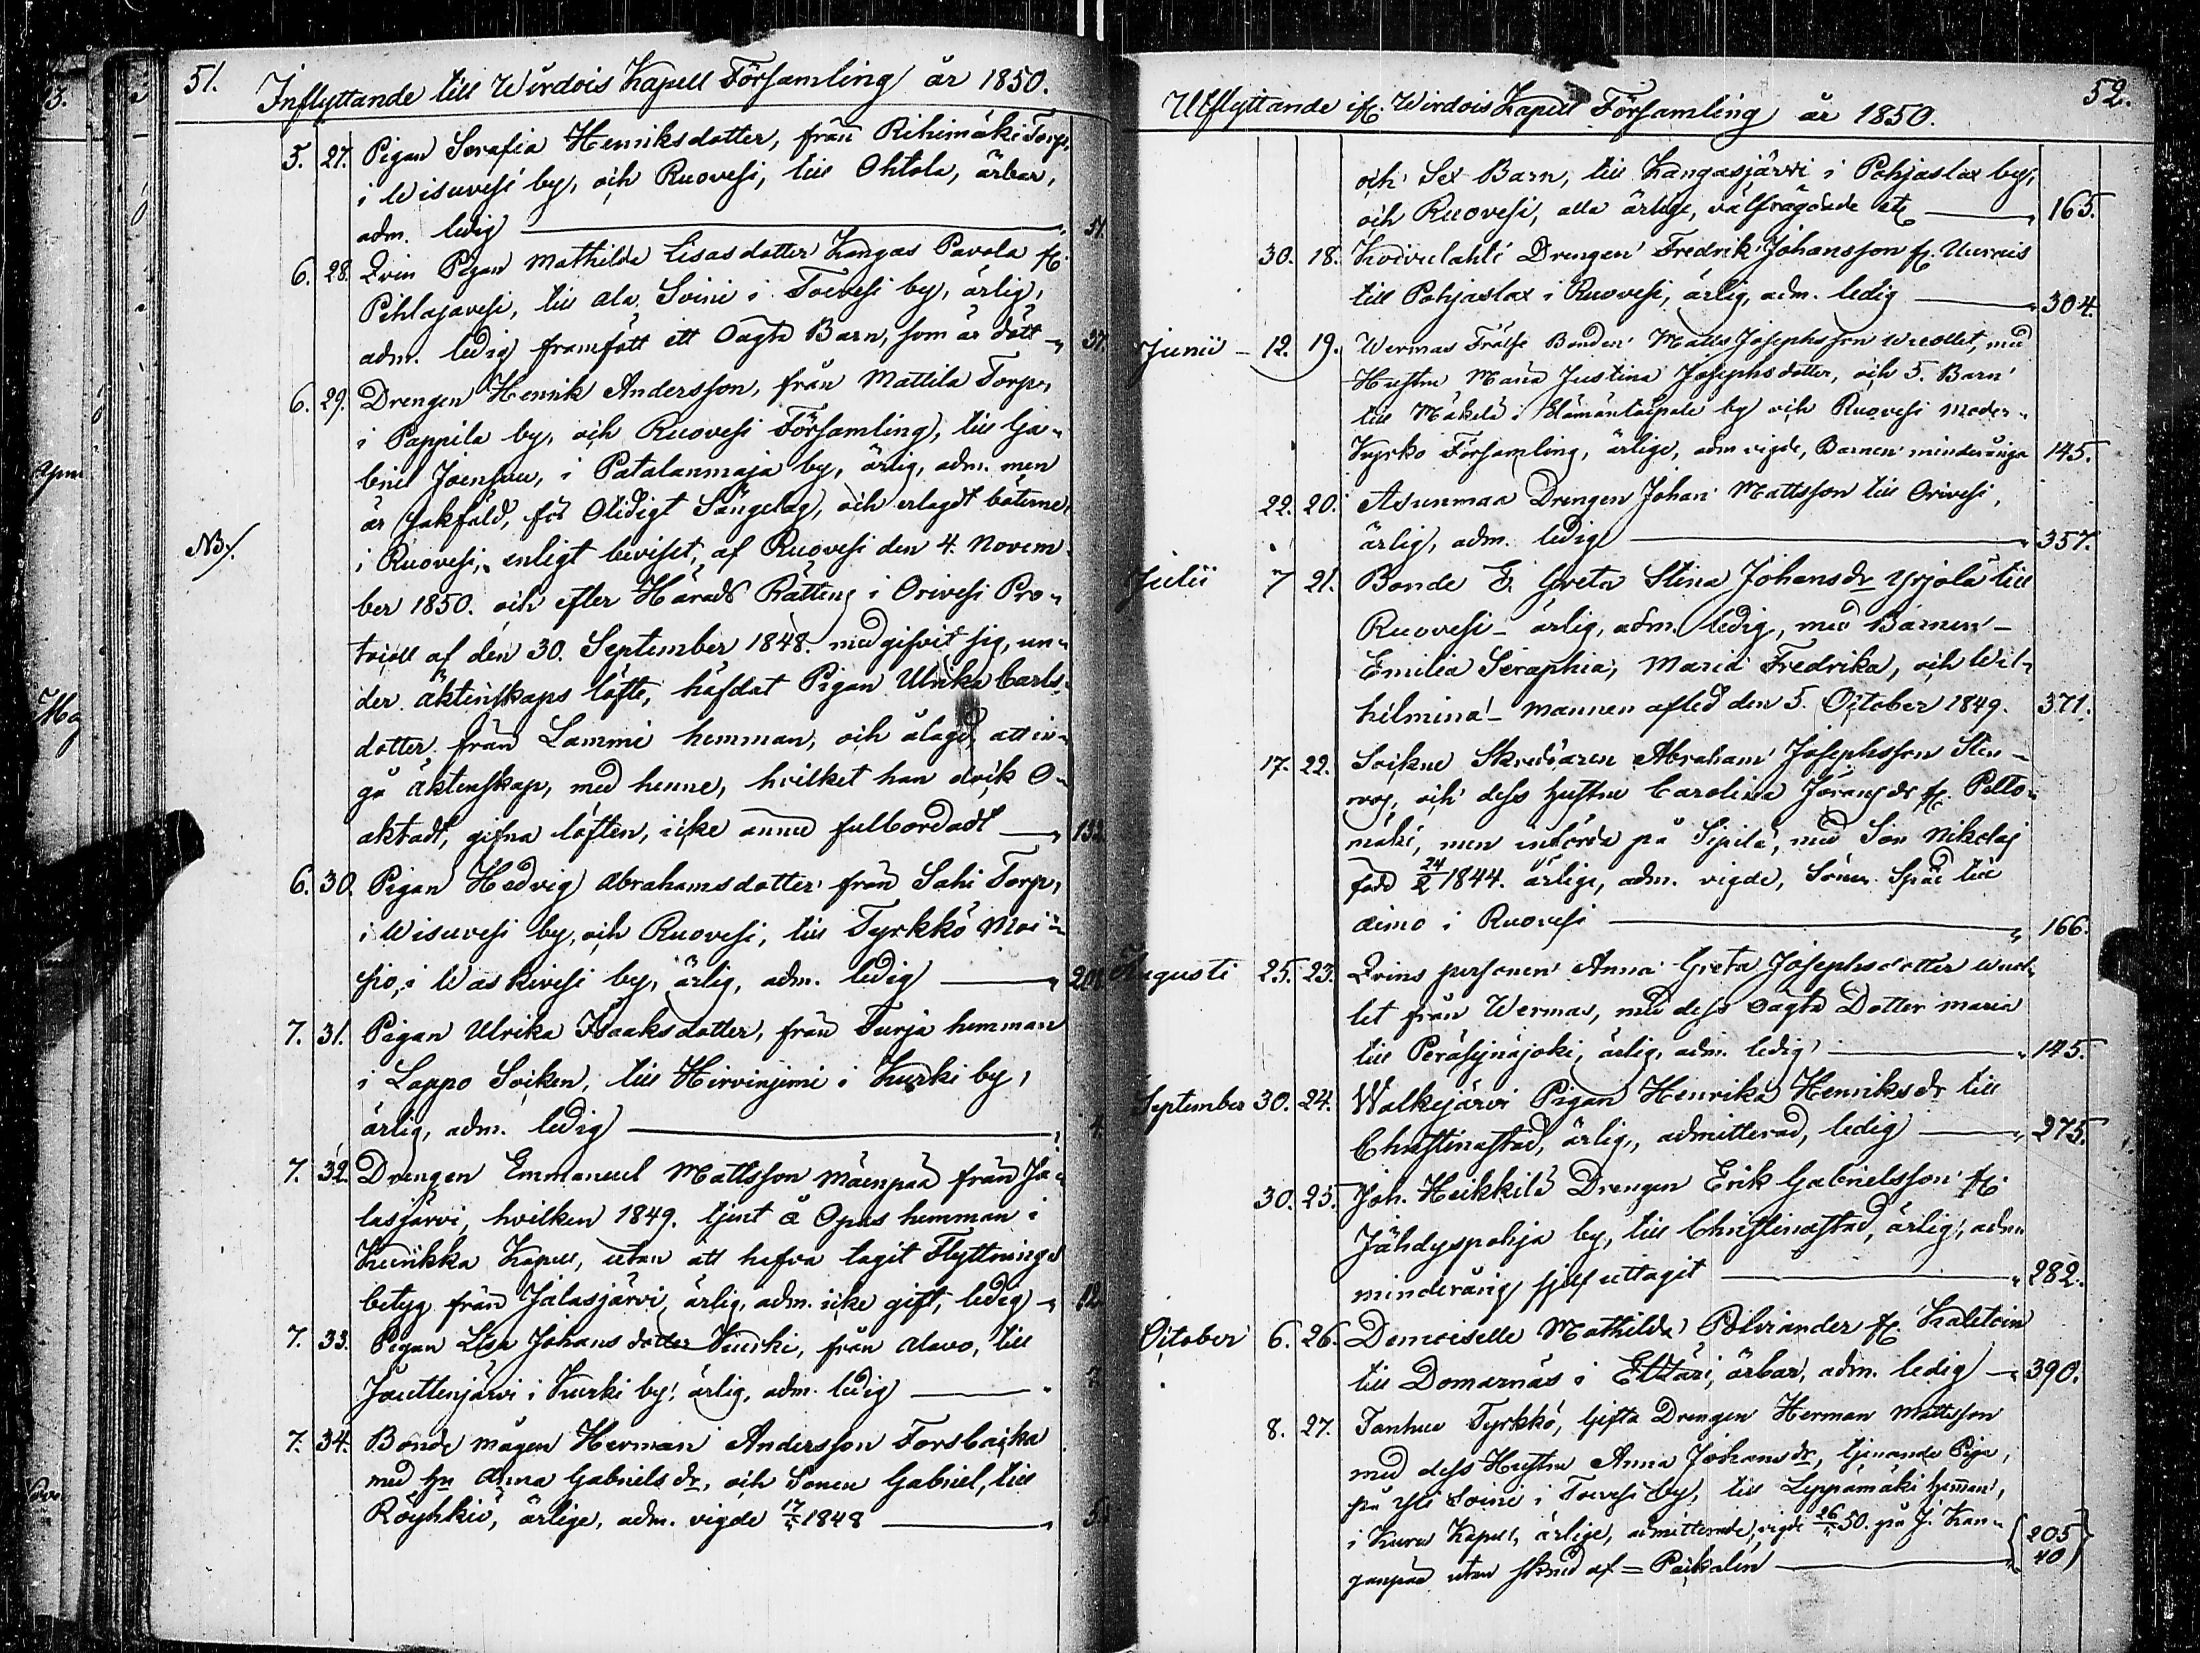 51.
Inflyttande till Wirdois Kapell Församling år 1850.
5. 27. Pigan Serafia Henriksdotter, från Rihimäki Torp,
i Wisuvesi by, och Ruovesi, till Ohtola, ärbar,
adm. ledig 51.
6. 28. Qvin Pigan Mathilda Lisasdotter Kangas Pavola fr.
Pihlajavesi, till Ala Soini i Toivesi by, ärlig,
adm. ledig framfött ett Oägta Barn, som är dött 37.
6. 29. Drengen Henrik Andersson, från Mattila Torp,
i Pappila by, och Ruovesi Församling, till Ga-
briel Joensuu, i Patalanmaja by, ärlig, adm. men
är sakfäld, för Olidigt Sängelag, och erlagdt böterne
NB/. i Ruovesi, enligt beviset, af Ruovesi den 4. Novem-
ber 1850. och efter Härads Rätteng i Orivesi Pro-
tocoll af den 30. September 1848. medgifvit sig, un-
der äktenskaps löfte, häfdat Pigan Ulrika Carls-
dotter från Lammi hemman, och ålagd, att in-
gå äktenskap, med henne, hvilket han dock O-
aktadt, gifna löften, icke ännu fulbordadt 132
6. 30. Pigan Hedvig Abrahamsdotter från Sahi Torp,
i Wisuvesi by, och Ruovesi, till Tyrkkö Moi-
sio, i Waskivesi by, ärlig, adm. ledig
7. 31. Pigan Ulrika Isaaksdotter, från Turja hemman
i Lappo Socken, till Hirvinjemi i Kurki by,
ärlig, adm. ledig 4.
7. 32. Drengen Emmanuel Mattsson Mäenpää från Ja-
lasjärvi, hvilken 1849. tjent å Opas hemman i
Kurikka Kapell, utan att hafva tagit Flyttnings
betyg från Jalasjärvi, ärlig, adm. icke gift, ledig 12
7. 33. Pigan Lisa Johans dotter Kurki, från Alavo, till
Jauttenjärvi i Kurki by, ärlig, adm. ledig
7. 34. Bonde mågen Herman Andersson Forsbacka
med Hu Anna Gabrielsdr, och Sonen Gabriel, till
Röyhkiö, ärlige, adm. vigde 1848 5.
52.
Utflyttande ifr. Wirdois Kapell Församling år 1850.
och Sex Barn, till Kangasjärvi i Pohjaslax by,
och Ruovesi, alla ärlige, välfrägdade etc 165.
30. 18. Koivulahti Drengen Fredrik Johansson fr. Uurais
till Pohjaslax i Ruovesi, ärlig, adm. ledig 304.
Junii 12. 19. Wermas Frälse Bonden Matts Josephsson Wuollet, med
Hustru Maria Justina Josephsdotter, och 5. Barn
till Mäkelä i Elämäntaipale by och Ruovesi Moder-
Kyrko Församling, ärlige, adm vigde, Barnen minderåriga 145.
22. 20. Asunmaa Drengen Johan Mattsson till Orivesi,
ärlig, adm. ledig 357.
Julii 7 21. Bonde E. Greta Stina Johansdr Yrjölä till
Ruovesi ärlig, adm. ledig, med Barnen
Emilia Seraphia, Maria Fredrika, och Wil-
helmina mannen afled den 5. October 1849. 371.
17. 22. Sockne Skredaren Abraham Josephsson Sten-
roos, och dess Hustru Carolina Göransdr fr. Pelto-
mäki, men införda på Sipilä, med Son Nikolaj
född 24/2 1844. ärlige, adm. vigde, Sonen Späd till
Aimo i Ruovesi 166.
Augusti 25. 23. Qvins personen Anna Greta Josephsdotter Wuol-
let från Wermas, med dess oägta Dotter Maria
till Peräseinäjoki, ärlig, adm. ledig 145.
September 30. 24. Walkejärvi Pigan Henrika Henriksdr till
Christinastad, ärlig, admitterad, ledig 275.
30. 25. Joh. Heikkilä Drengen Erik Gabrielsson fr.
Jähdyspohja by, till Christinastad, ärlig, adm
minderårig sjelf uttagit 282.
October 6. 26. Demoiselle Mathilda Polviander fr. Kaletoin
till Domarnäs i Etzäri, ärbar, adm. ledig 390.
8. 27. Tanhua Tyrkkö, Gifta Drengen Herman Mattsson
med dess Hustru Anna Johansdr, tjenande Piga,
på Yli Soini i Toivesi by, till Leppämäki heman,
i Kuru Kapell, ärlige, admitterade, vigde 50. på J. Kan-
ganpää utan skud af = Paikalin 205
40